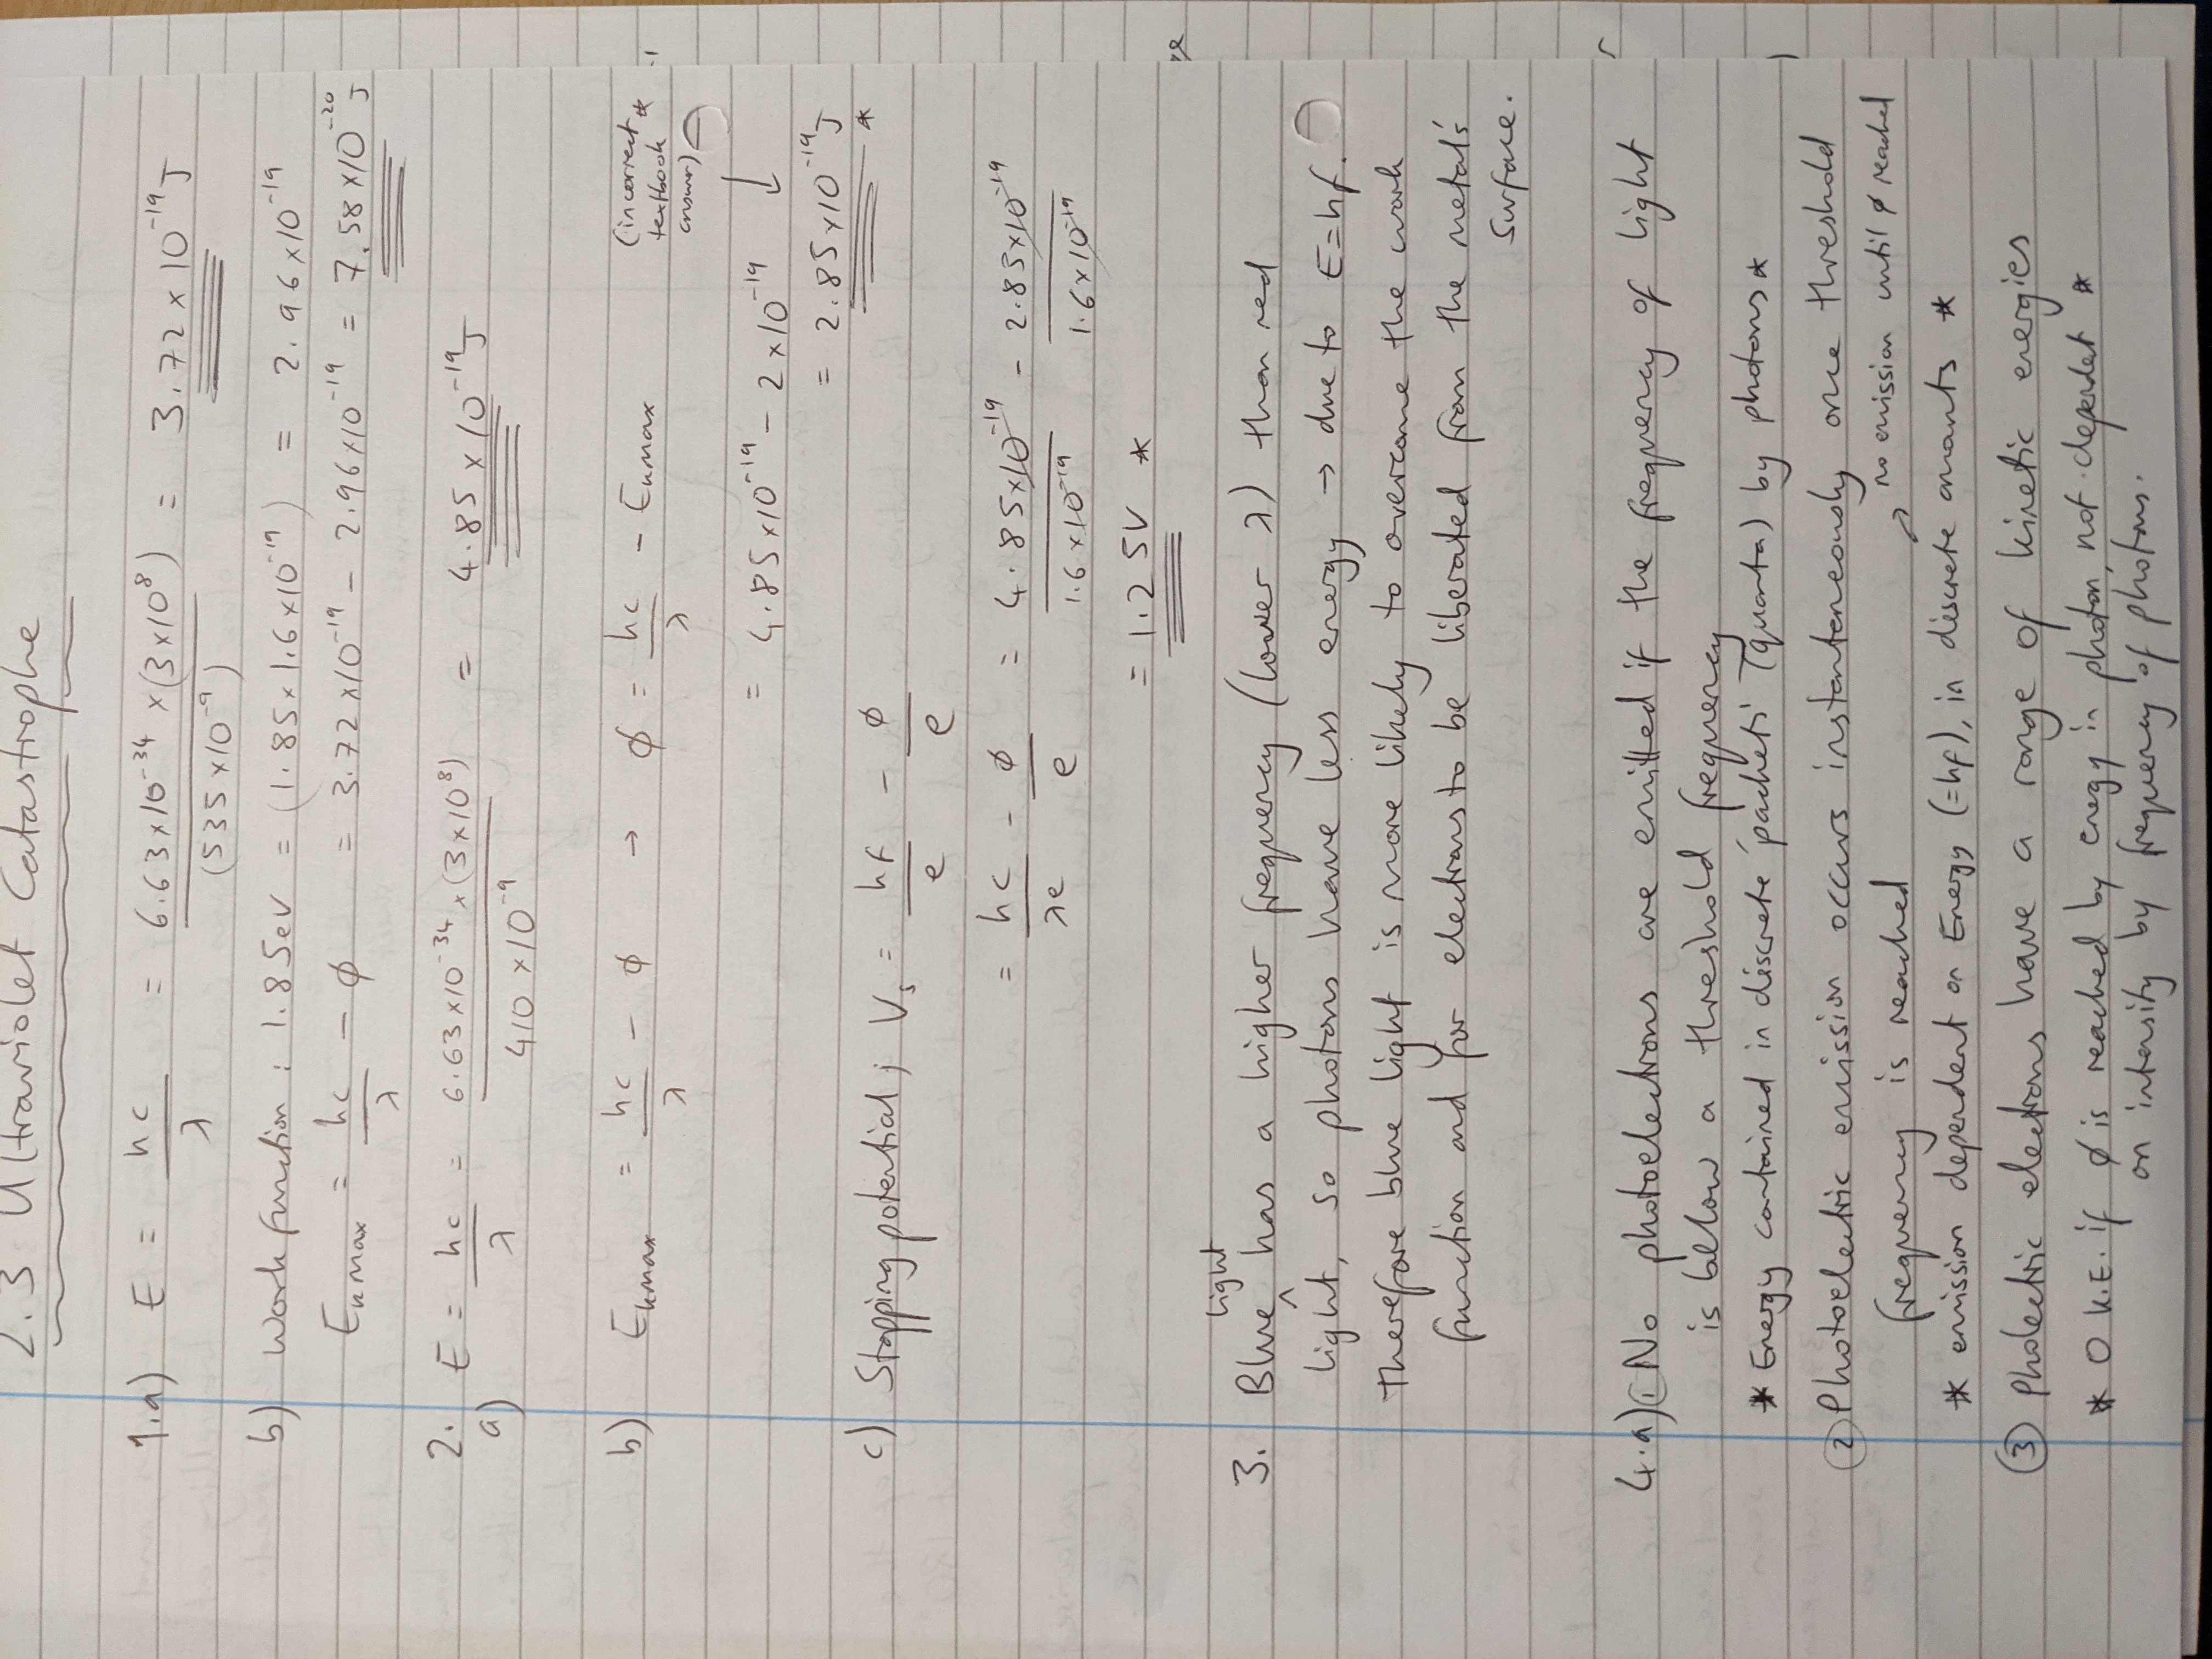 2.3 Ultraviolet Catastrophe
1.a) E = hc/λ = 6.63×10⁻³⁴ × (3×10⁸)/(535×10⁻⁹) = 3.72 × 10⁻¹⁹ J
b) Work function : 1.85eV = (1.85 × 1.6×10⁻¹⁹) = 2.96×10⁻¹⁹
Ekmax = hc/λ - ϕ = 3.72×10⁻¹⁹ - 2.96×10⁻¹⁹ = 7.58×10⁻²⁰ J
2. a) E = hc/λ = 6.63×10⁻³⁴ × (3×10⁸)/410×10⁻⁹ = 4.85 × 10⁻¹⁹ J
b) Ekmax = hc/λ - ϕ → ϕ = hc/λ - Ekmax (incorrect * textbook answer)
= 4.85×10⁻¹⁹ - 2×10⁻¹⁹ ↓
= 2.85×10⁻¹⁹ J *
c) Stopping potential; Vs = hf/e - ϕ/e
= hc/λe - ϕ/e = 4.85×10⁻¹⁹/1.6×10⁻¹⁹ - 2.85×10⁻¹⁹/1.6×10⁻¹⁹
= 1.25V *
3. Blue ^light has a higher frequency (lower λ) than red
light, so photons have less energy → due to E=hf.
Therefore blue light is more likely to overcome the work
function and for electrons to be liberated from the metal's
surface.
4.a) ① No photoelectrons are emitted if the frequency of light
is below a threshold frequency
* Energy contained in discrete 'packets' (quanta) by photons *
② Photoelectric emission occurs instantaneously once threshold
frequency is reached
no emission until ϕ reached
* emission dependent on Energy (=hf), in discrete amounts *
③ Pholectric electrons have a range of kinetic energies
* 0 k.E. if ϕ is reached by energy in photon, not dependet *
on intensity by frequency of photons.